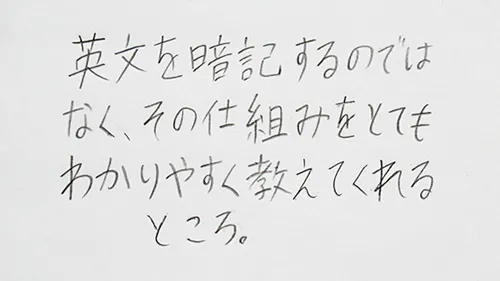 英文を暗記するのでは
なく、その仕組みをとても
わかりやすく教えてくれる
ところ。